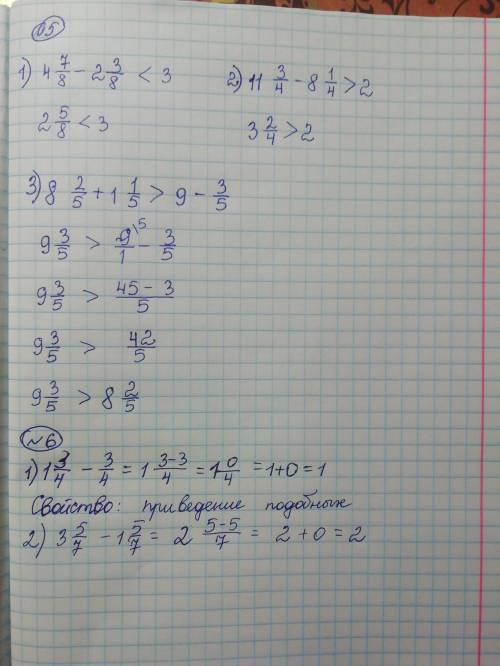 05
1) 4 7/8 - 2 3/8 < 3   2) 11 3/4 - 8 1/4 > 2
2 5/8 < 3   3 2/4 > 2
3) 8 2/5 + 1 1/5 > 9 - 3/5
9 3/5 > 9\5/1 - 3/5
9 3/5 > 45-3/5
9 3/5 > 42/5
9 3/5 > 8 2/5
№6
1) 1 3/4 - 3/4 = 1 3-3/4 = 1 0/4 = 1+0=1
Свойство: приведение подобных
2) 3 5/7 - 1 5/7 = 2 5-5/7 = 2+0=2